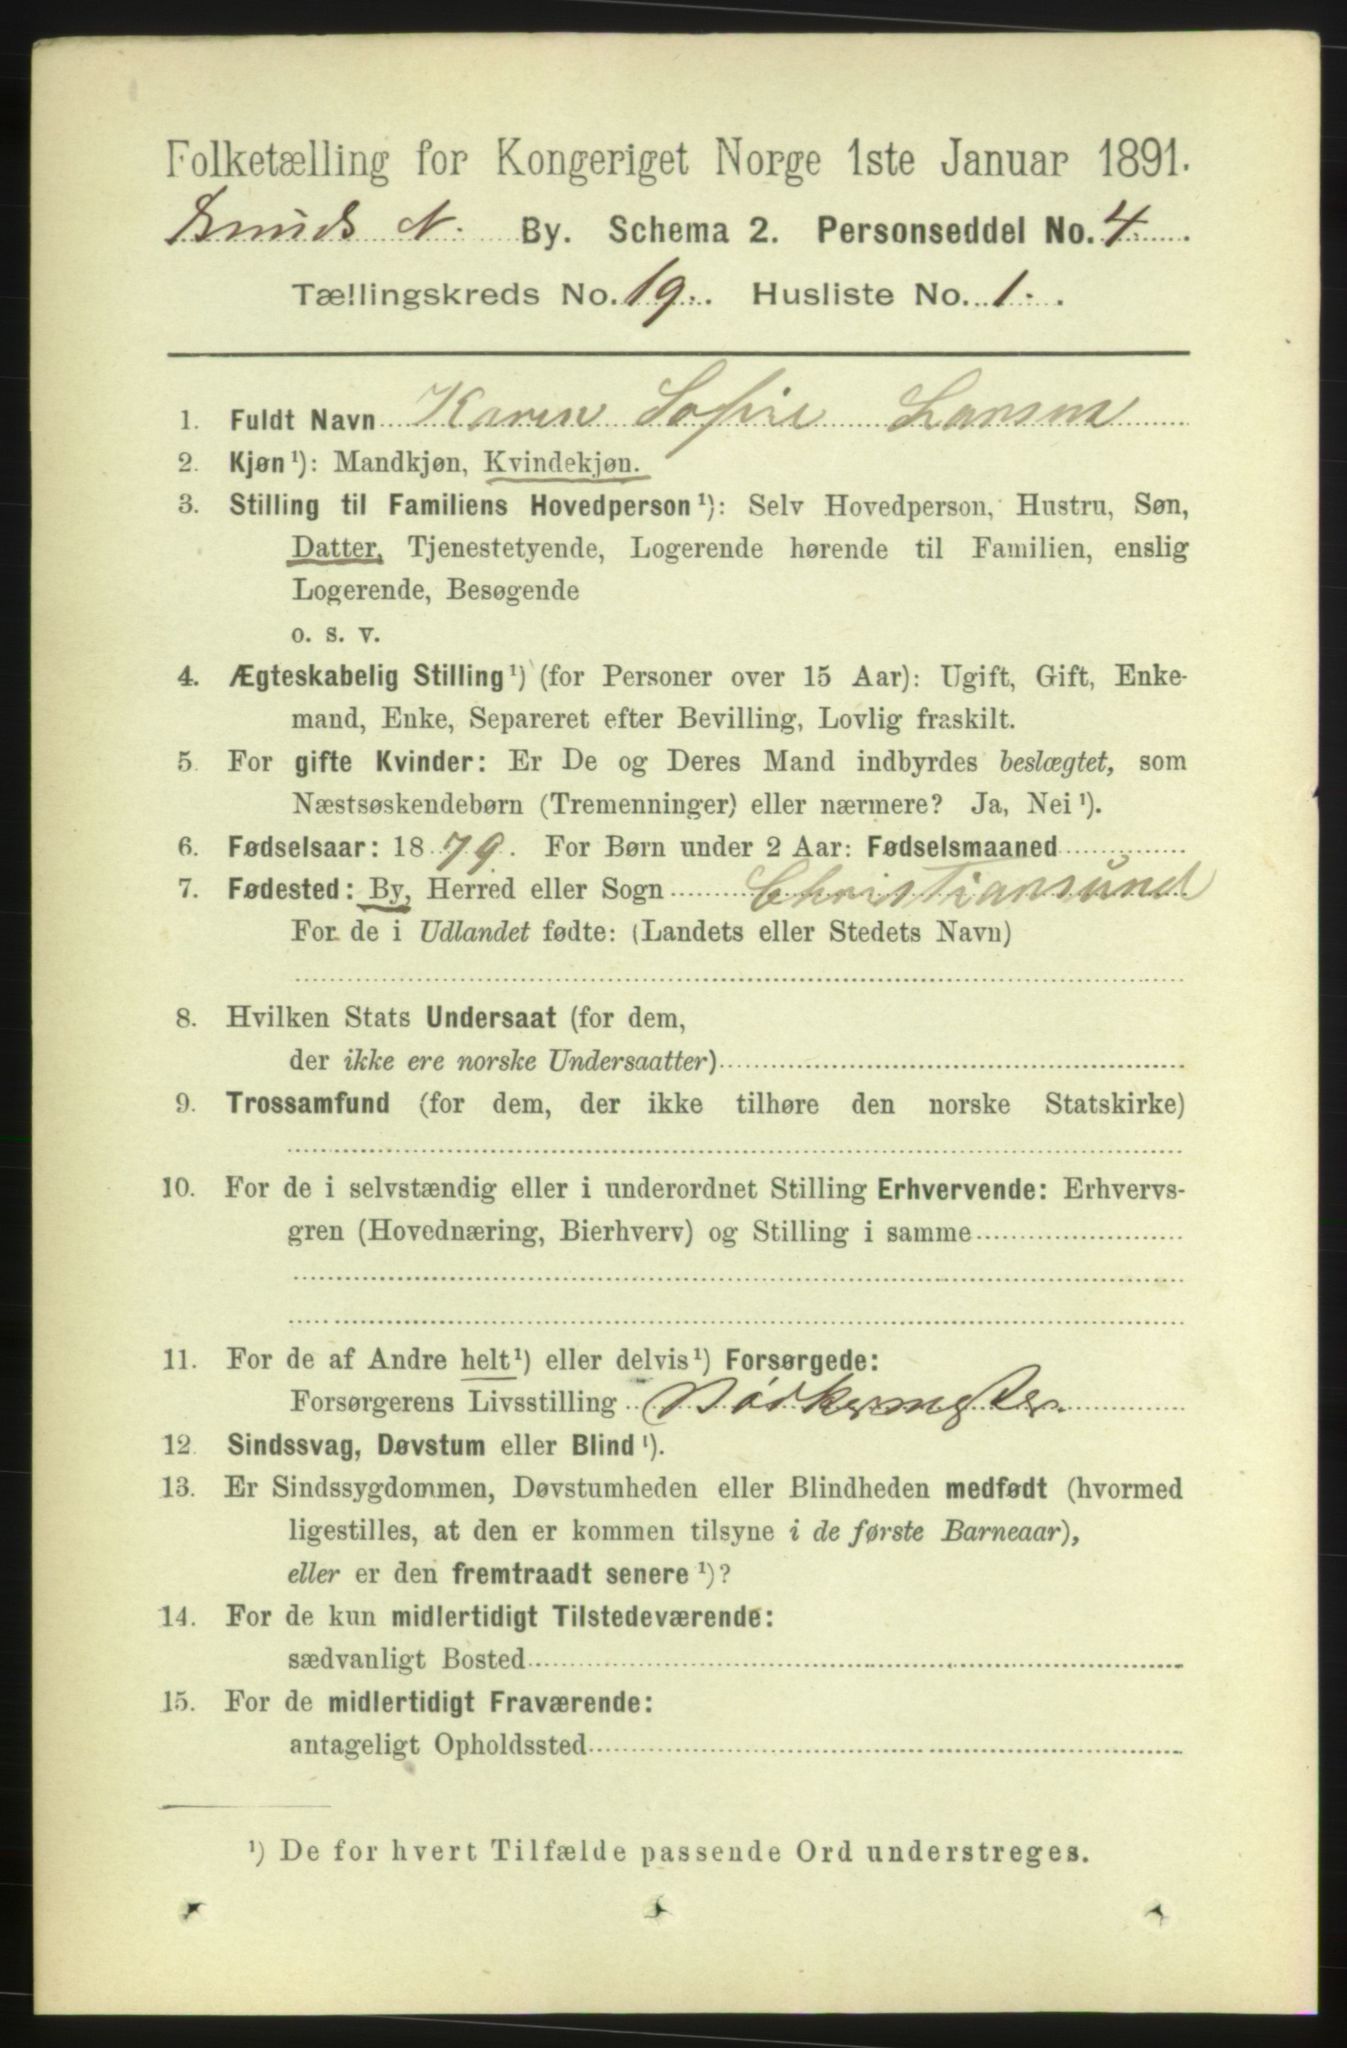 Folketælling for Kongeriget Norge 1ste Januar 1891.
N. By. Schema 2. Personseddel No. 4
Tællingskreds No. 19. Husliste No. 1.
1. Fuldt Navn Karen Sofie Larsen
2. Kjøn¹): Mandkjøn, Kvindekjøn.
3. Stilling til Familiens Hovedperson¹): Selv Hovedperson, Hustru, Søn,
Datter, Tjenestetyende, Logerende hørende til Familien, enslig
Logerende, Besøgende
o. s. v.
4. Ægteskabelig Stilling¹) (for Personer over 15 Aar): Ugift, Gift, Enke-
mand, Enke, Separeret efter Bevilling, Lovlig fraskilt.
5. For gifte Kvinder: Er De og Deres Mand indbyrdes beslægtet, som
Næstsøskendebørn (Tremenninger) eller nærmere? Ja, Nei¹).
6. Fødselsaar: 1879. For Børn under 2 Aar: Fødselsmaaned
7. Fødested: By, Herred eller Sogn Christiansund
For de i Udlandet fødte: (Landets eller Stedets Navn)
8. Hvilken Stats Undersaat (for dem,
der ikke ere norske Undersaatter)
9. Trossamfund (for dem, der ikke tilhøre den norske Statskirke)
10. For de i selvstændig eller i underordnet Stilling Erhvervende: Erhvervs-
gren (Hovednæring, Bierhverv) og Stilling i samme
11. For de af Andre helt¹) eller delvis¹) Forsørgede:
Forsørgerens Livsstilling Bødkermester
12. Sindssvag, Døvstum eller Blind¹).
13. Er Sindssygdommen, Døvstumheden eller Blindheden medfødt (hvormed
ligestilles, at den er kommen tilsyne i de første Barneaar),
eller er den fremtraadt senere¹)?
14. For de kun midlertidigt Tilstedeværende:
sædvanligt Bosted
15. For de midlertidigt Fraværende:
antageligt Opholdssted
¹) De for hvert Tilfælde passende Ord understreges.